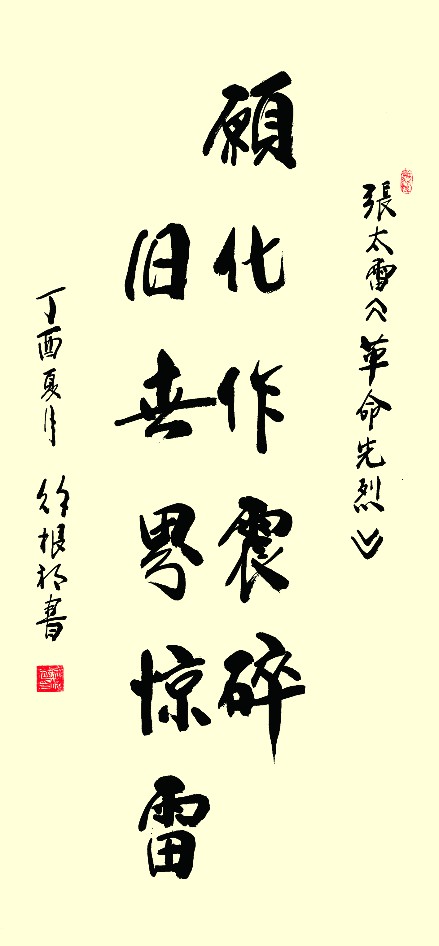 張太雷《革命先烈》
願化作震碎
旧世界惊雷
丁酉夏月 徐根初書